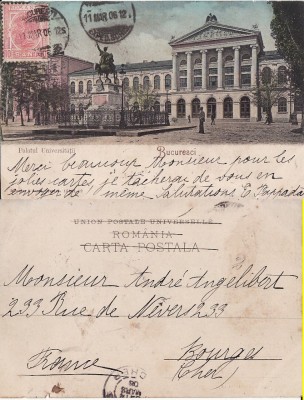 11 MAR 06 12
11 MAR 06 12
Palatul Universităţii
Bucuresci
Merci beaucoup Monsieur pour les
jolies cartes, je tâcherai de vous en
envoyer de même. Salutations E.
UNION POSTALE UNIVERSELLE
ROMÂNIA
CARTA POSTALA
Monsieur André Angelibert
233 Rue de Nèvers 233
France
Bourges
(Cher)
CHER